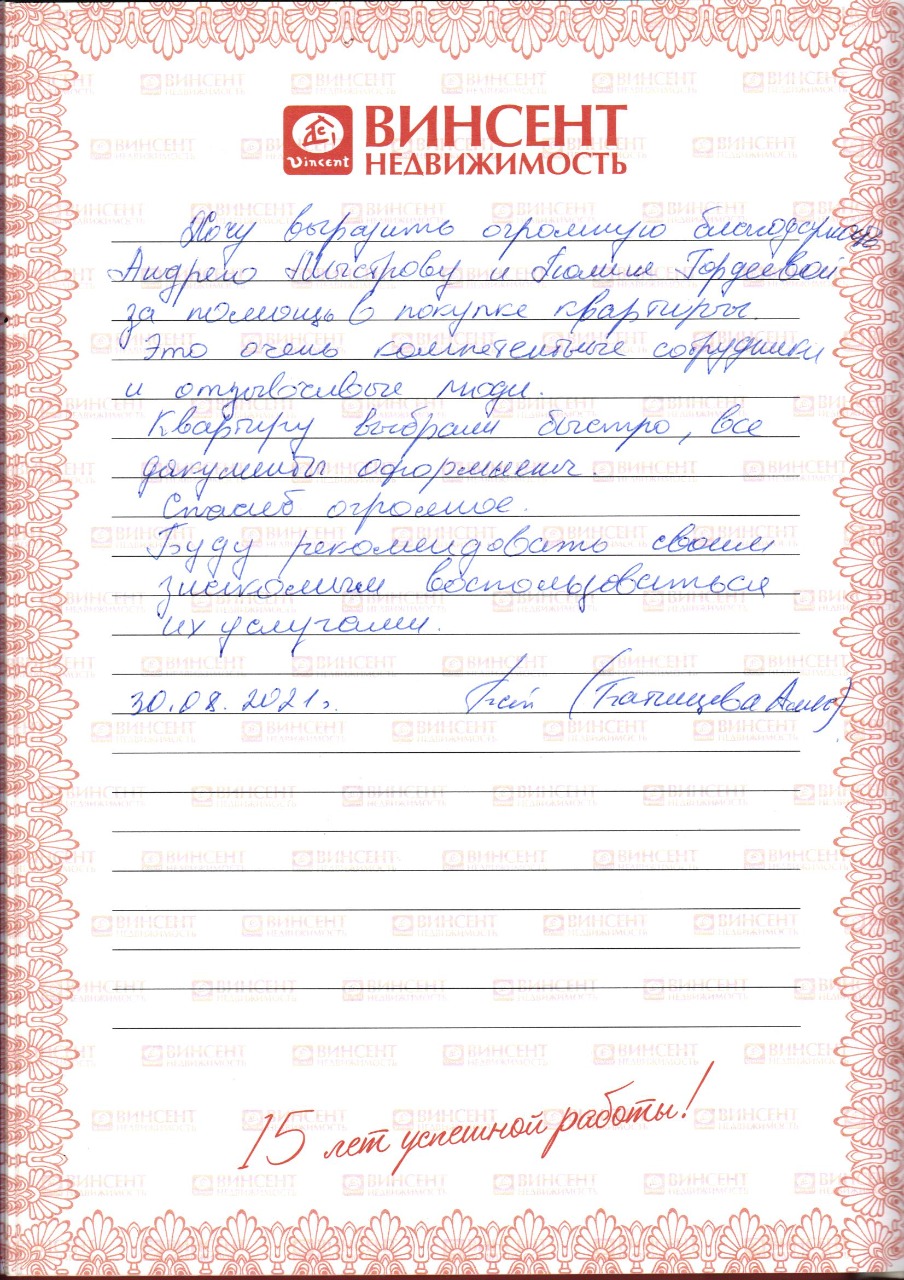 ВИНСЕНТ
НЕДВИЖИМОСТЬ
Vincent
Хочу выразить огромную благодарность
Андрею и Полине Гордеевой
за помощь в покупке квартиры.
Это очень компетентные сотрудники
и отзывчивые люди.
Квартиру выбрали быстро, все
документы оформили.
Спасиб огромное.
Буду рекомендовать своим
знакомым воспользоваться
их услугами.
30.08.2021г.
15 лет успешной работы!